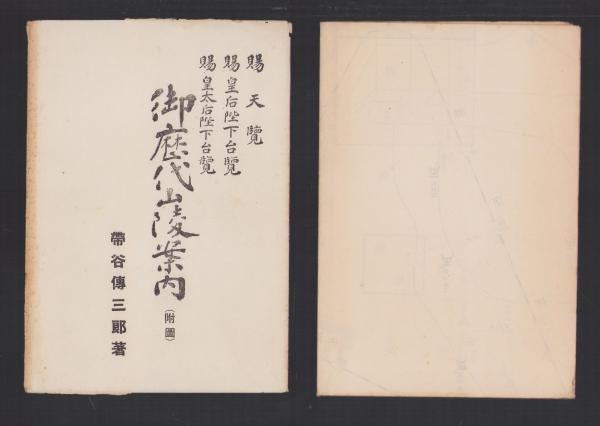 賜天覽
賜皇后陛下台覽
賜皇太后陛下台覽
御歴代山陵案内
(附圖)
帶谷傳三郎著